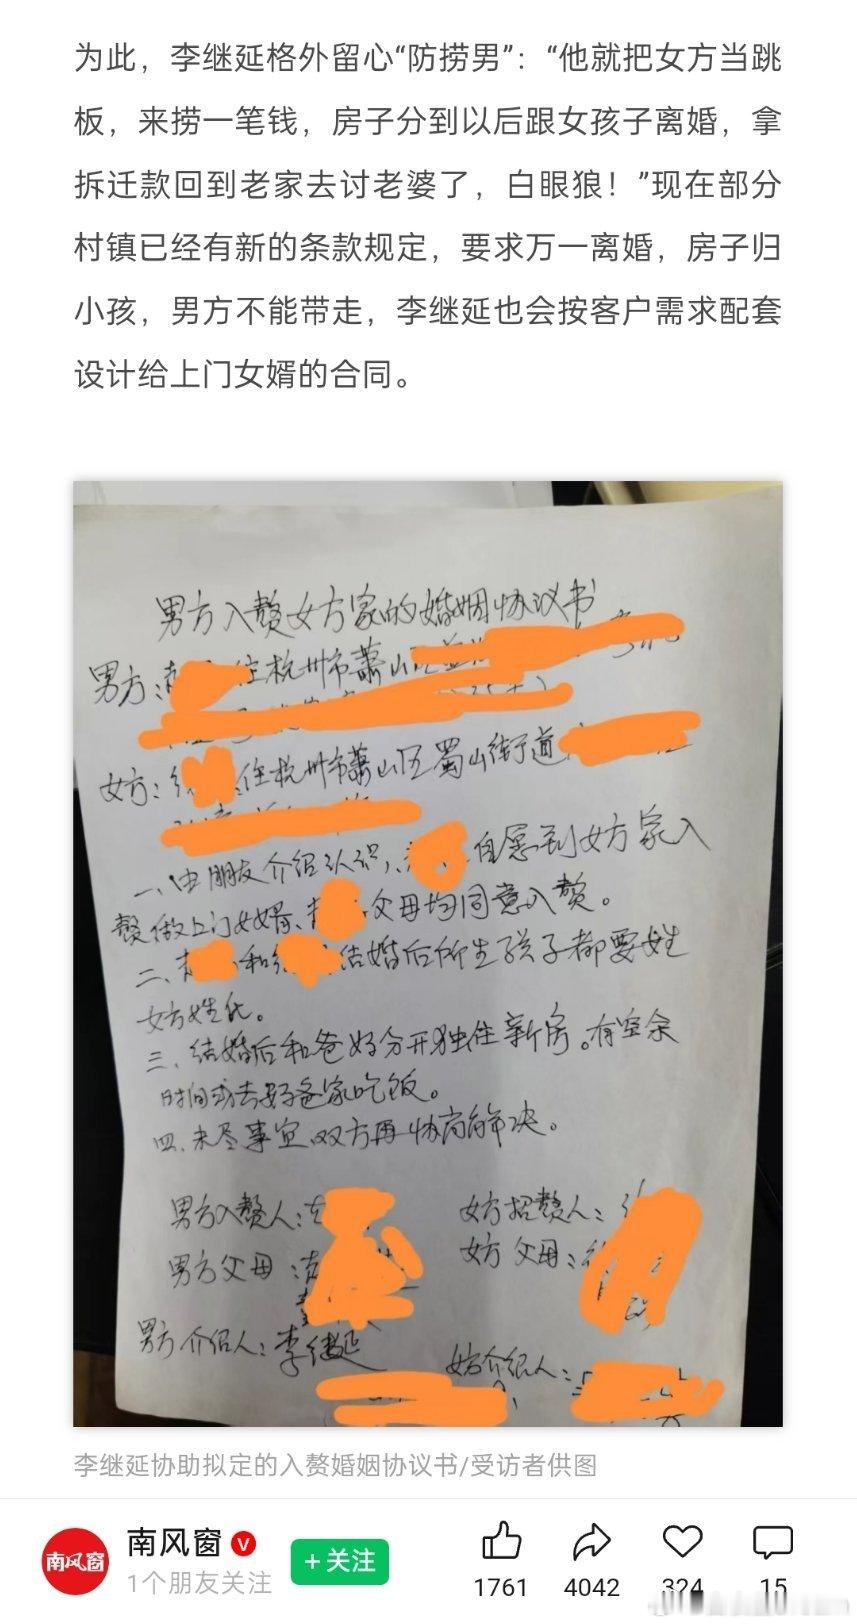 为此，李继延格外留心“防捞男”：“他就把女方当跳
板，来捞一笔钱，房子分到以后跟女孩子离婚，拿
拆迁款回到老家去讨老婆了，白眼狼！”现在部分
村镇已经有新的条款规定，要求万一离婚，房子归
小孩，男方不能带走，李继延也会按客户需求配套
设计给上门女婿的合同。
男方入赘女方家的婚姻协议书
男方：住杭州市萧山区
女方：住杭州市萧山区蜀山街道
一、由朋友介绍认识，自愿到女方家入
赘做上门女婿、父母均同意入赘。
二、和结婚后所生孩子都要姓
女方姓氏。
三、结婚后和爸妈分开独住新房。有空余
时间或去爸家吃饭。
四、未尽事宜双方再协商解决。
男方入赘人：
女方招赘人：
男方父母：
女方父母：
男方介绍人：李继延
女方介绍人：
李继延协助拟定的入赘婚姻协议书/受访者供图
南风窗
南风窗 V
+关注
1个朋友关注
1761
4042
324
15